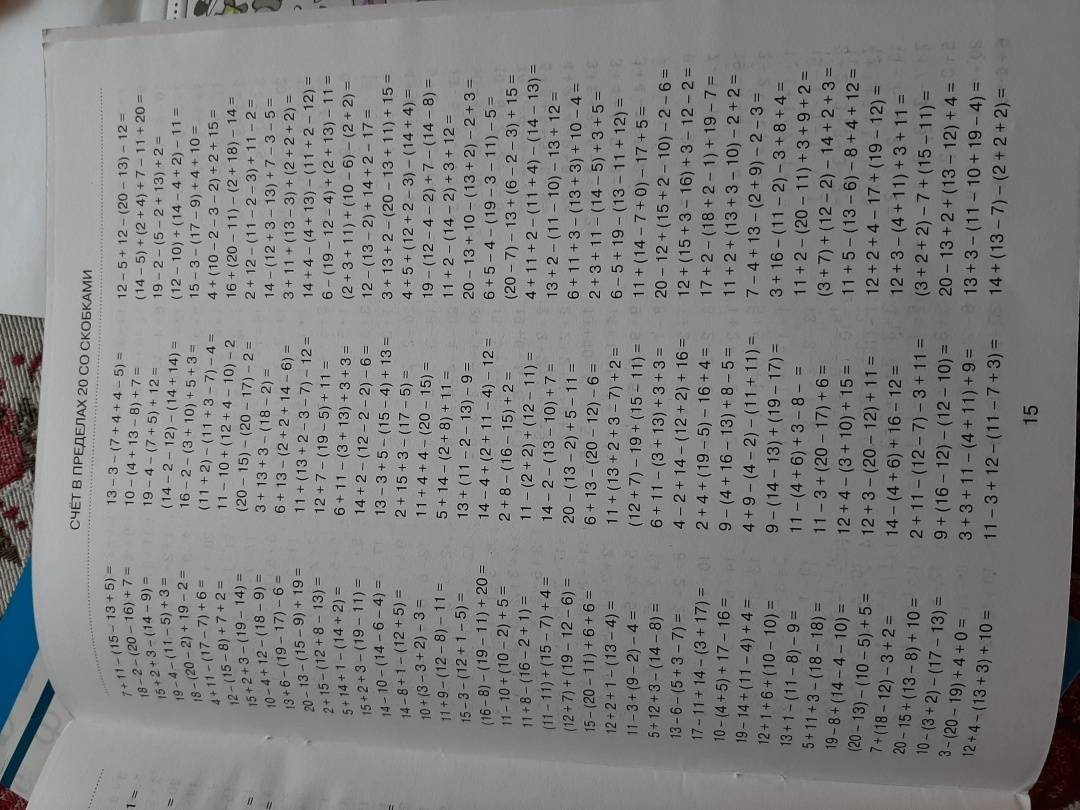 СЧЁТ В ПРЕДЕЛАХ 20 СО СКОБКАМИ
7 + 11 – (15 – 13 + 5) =
18 – 2 – (20 – 16) + 7 =
15 + 2 + 3 – (14 – 9) =
19 – 4 – (11 – 5) + 3 =
18 – (20 – 2) + 19 – 2 =
4 + 11 – (17 – 7) + 6 =
12 – (15 – 8) + 7 + 2 =
15 + 2 + 3 – (19 – 14) =
10 – 4 + 12 – (18 – 9) =
13 + 6 – (19 – 17) – 6 =
20 – 13 – (15 – 9) + 19 =
2 + 15 – (12 + 8 – 13) =
5 + 14 + 1 – (14 + 2) =
15 + 2 + 3 – (19 – 11) =
14 – 10 – (14 – 6 – 4) =
14 – 8 + 1 – (12 + 5) =
10 + (3 – 3 + 2) – 3 =
11 + 9 – (12 – 8) – 11 =
15 – 3 – (12 + 1 – 5) =
(16 – 8) – (19 – 11) + 20 =
11 – 10 + (10 – 2) + 5 =
11 + 8 – (16 – 2 + 1) =
(11 – 11) + (15 – 7) + 4 =
(12 + 7) + (19 – 12 – 6) =
15 – (20 – 11) + 6 + 6 =
12 + 2 + 1 – (13 – 4) =
11 – 3 + (9 – 2) – 4 =
5 + 12 + 3 – (14 – 8) =
13 – 6 – (5 + 3 – 7) =
17 – 11 + 14 – (3 + 17) =
10 – (4 + 5) + 17 – 16 =
19 – 14 + (11 – 4) + 4 =
12 + 1 + 6 + (10 – 10) =
13 + 1 – (11 – 8) – 9 =
5 + 11 + 3 – (18 – 18) =
19 – 8 + (14 – 4 – 10) =
(20 – 13) – (10 – 5) + 5 =
7 + (18 – 12) – 3 + 2 =
20 – 15 + (13 – 8) + 10 =
10 – (3 + 2) – (17 – 13) =
3 – (20 – 19) + 4 + 0 =
12 + 4 – (13 + 3) + 10 =
13 – 3 – (7 + 4 + 4 – 5) =
10 – (4 + 13 – 8) + 7 =
19 – 4 – (7 + 5) + 12 =
(14 – 2 – 12) – (14 + 14) =
16 – 2 – (3 + 10) + 5 + 3 =
(11 + 2) – (11 + 3 – 7) – 4 =
11 – 10 + (12 + 4 – 10) – 2
(20 – 15) – (20 – 17) – 2 =
3 + 13 + 3 – (18 – 2) =
6 + 13 – (2 + 2 + 14 – 6) =
11 + (13 + 2 – 3 – 7) – 12 =
12 + 7 – (19 – 5) + 11 =
6 + 11 – (3 + 13) + 3 + 3 =
14 + 2 – (12 – 2 – 2) – 6 =
13 – 3 + 5 – (15 – 4) + 13 =
2 + 15 + 3 – (17 – 5) =
11 + 4 + 4 – (20 – 15) =
5 + 14 – (2 + 8) + 11 =
13 + (11 – 2 – 13) – 9 =
14 – 4 + (2 + 11 – 4) – 12 =
2 + 8 – (16 – 15) + 2 =
11 – (2 + 2) + (12 – 11) =
14 – 2 – (13 – 10) + 7 =
20 – (13 – 2) + 5 – 11 =
6 + 13 – (20 – 12) – 6 =
11 + (13 + 2 + 3 – 7) + 2 =
(12 + 7) – 19 + (15 – 11) =
6 + 11 – (3 + 13) + 3 + 3 =
4 – 2 + 14 – (12 + 2) + 16 =
2 + 4 + (19 – 5) – 16 + 4 =
9 – (4 + 16 – 13) + 8 – 5 =
4 + 9 – (4 – 2) – (11 + 11) =
9 – (14 – 13) + (19 – 17) =
11 – (4 + 6) + 3 – 8 – =
11 – 3 + (20 – 17) + 6 =
12 + 4 – (3 + 10) + 15 =
12 + 3 – (20 – 12) + 11 =
14 – (4 + 6) + 16 – 12 =
2 + 11 – (12 – 7) – 3 + 11 =
9 + (16 – 12) – (12 – 10) =
3 + 3 + 11 – (4 + 11) + 9 =
11 – 3 + 12 – (11 – 7 + 3) =
12 – 5 + 12 – (20 – 13) – 12 =
(14 – 5) + (2 + 4) + 7 – 11 + 20 =
19 – 2 – (5 – 2 + 13) + 2 =
(12 – 10) + (14 – 4 + 2) – 11 =
15 – 3 – (17 – 9) + 4 + 10 =
4 + (10 – 2 – 3 – 2) + 2 + 15 =
16 + (20 – 11) – (2 + 18) – 14 =
2 + 12 – (11 – 2 – 3) + 11 – 2 =
14 – (12 + 3 – 13) + 7 – 3 – 5 =
3 + 11 + (13 – 3) + (2 + 2 + 2) =
14 + 4 – (4 + 13) – (11 + 2 – 12) =
6 – (19 – 12 – 4) + (2 + 13) – 11 =
(2 + 3 + 11) + (10 – 6) – (2 + 2) =
12 – (13 – 2) + 14 + 2 – 17 =
3 + 13 + 2 – (20 – 13 + 11) + 15 =
4 + 5 + (12 + 2 – 3) – (14 + 4) =
19 – (12 – 4 – 2) + 7 – (14 – 8) =
11 + 2 – (14 – 2) + 3 + 12 =
20 – 13 + 10 – (13 + 2) – 2 + 3 =
6 + 5 – 4 – (19 – 3 – 11) – 5 =
(20 – 7) – 13 + (6 – 2 – 3) + 15 =
4 + 11 + 2 – (11 + 4) – (14 – 13) =
13 + 2 – (11 – 10) – 13 + 12 =
6 + 11 + 3 – (13 + 3) + 10 – 4 =
2 + 3 + 11 – (14 – 5) + 3 + 5 =
6 – 5 + 19 – (13 – 11 + 12) =
11 + (14 – 7 + 0) – 17 + 5 =
20 – 12 + (15 + 2 – 10) – 2 – 6 =
12 + (15 + 3 – 16) + 3 – 12 – 2 =
17 + 2 – (18 + 2 – 1) + 19 – 7 =
11 + 2 + (13 + 3 – 10) – 2 + 2 =
7 – 4 + 13 – (2 + 9) – 2 – 3 =
3 + 16 – (11 – 2) – 3 + 8 + 4 =
11 + 2 – (20 – 11) + 3 + 9 + 2 =
(3 + 7) + (12 – 2) – 14 + 2 + 3 =
11 + 5 + (13 – 6) – 8 + 4 + 12 =
12 + 2 + 4 – 17 + (19 – 12) =
12 + 3 – (4 + 11) + 3 + 11 =
(3 + 2 + 2) – 7 + (15 – 11) =
20 – 13 + 2 + (13 – 12) + 4 =
13 + 3 – (11 – 10 + 19 – 4) =
14 + (13 – 7) – (2 + 2 + 2) =
15